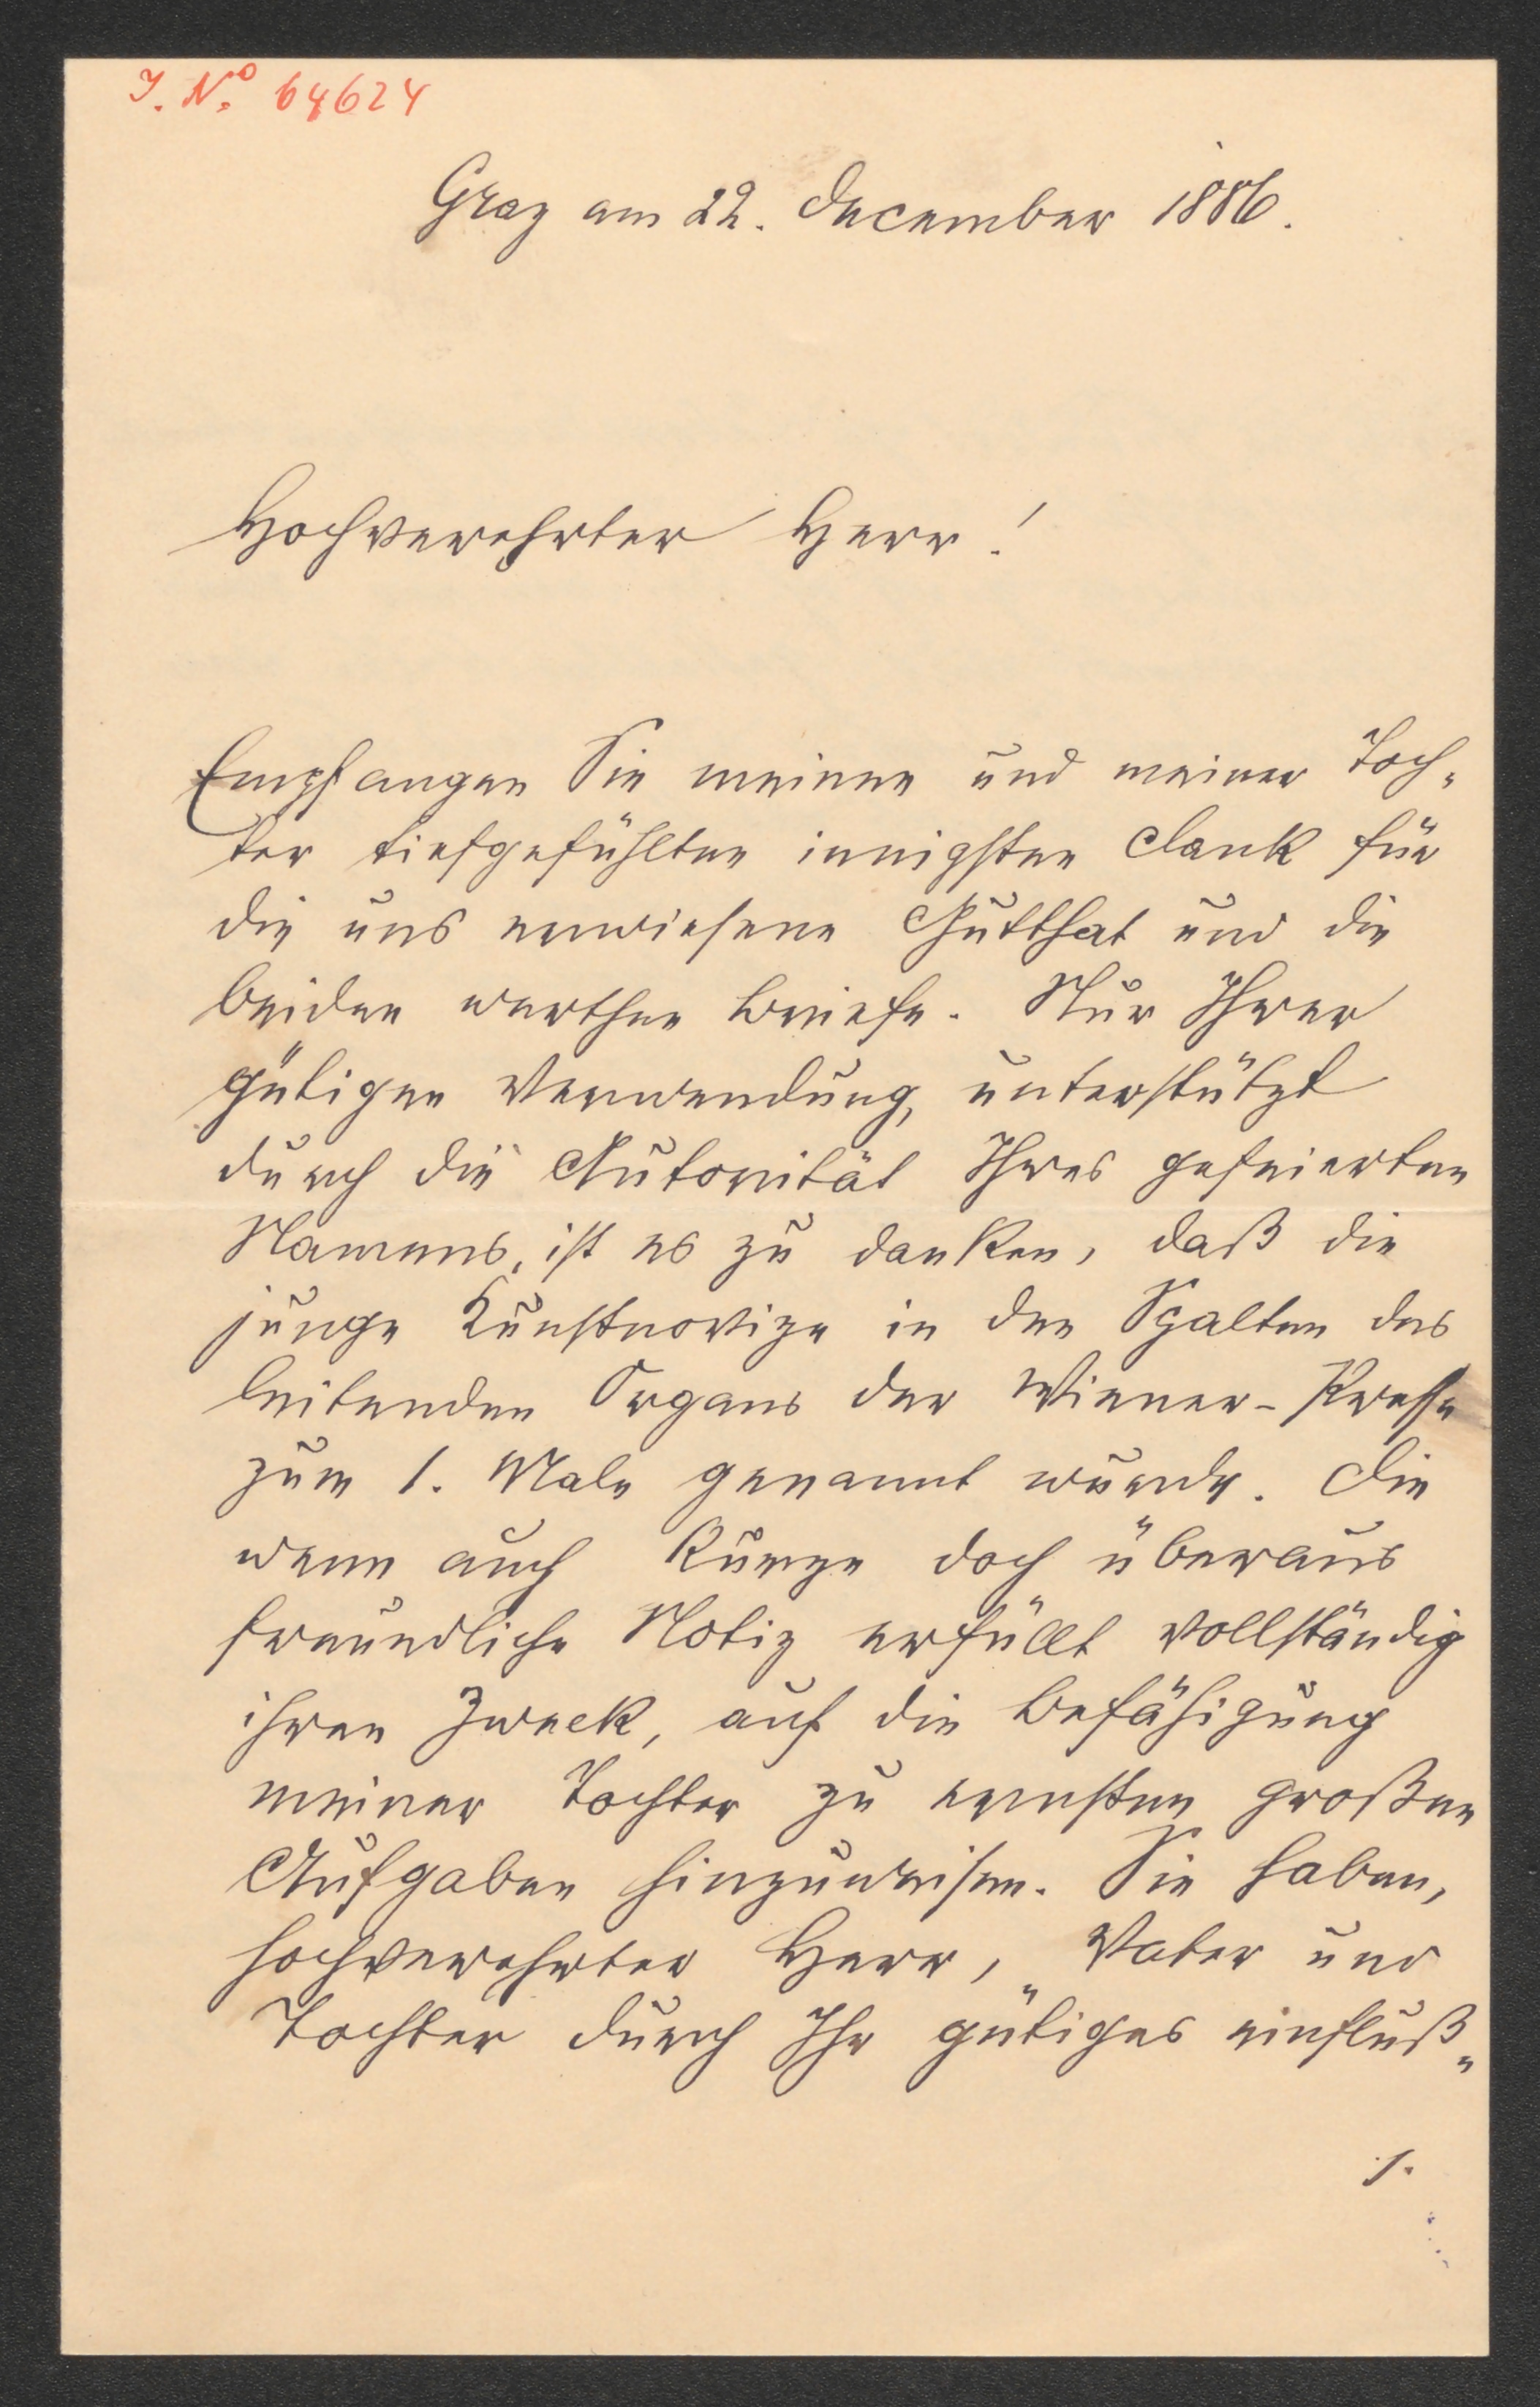 I. N.o 64624
Graz am 22. December 1886.
Hochverehrter Herr!
Empfangen Sie meinen und meiner Toch-
ter tiefgefühlten innigsten Dank für
die uns erwiesene Gutthat und die
beiden werthen Briefe. Nur Ihrer
gütigen Verwendung, unterstützt
durch die Autorität Ihres gefeierten
Namens, ist es zu danken, daß die
junge Kunstnovize in den Spalten des
leitenden Organs der Wiener-Presse
zum 1. Male genannt wurde. Die
wenn auch kurze doch überaus
freundliche Notiz erfüllt vollständig
ihren Zweck, auf die Befähigung
meiner Tochter zu ernsten großen
Aufgaben hinzuweisen. Sie haben,
hochverehrter Herr, Vater und
Tochter durch Ihr gütiges einfluß-